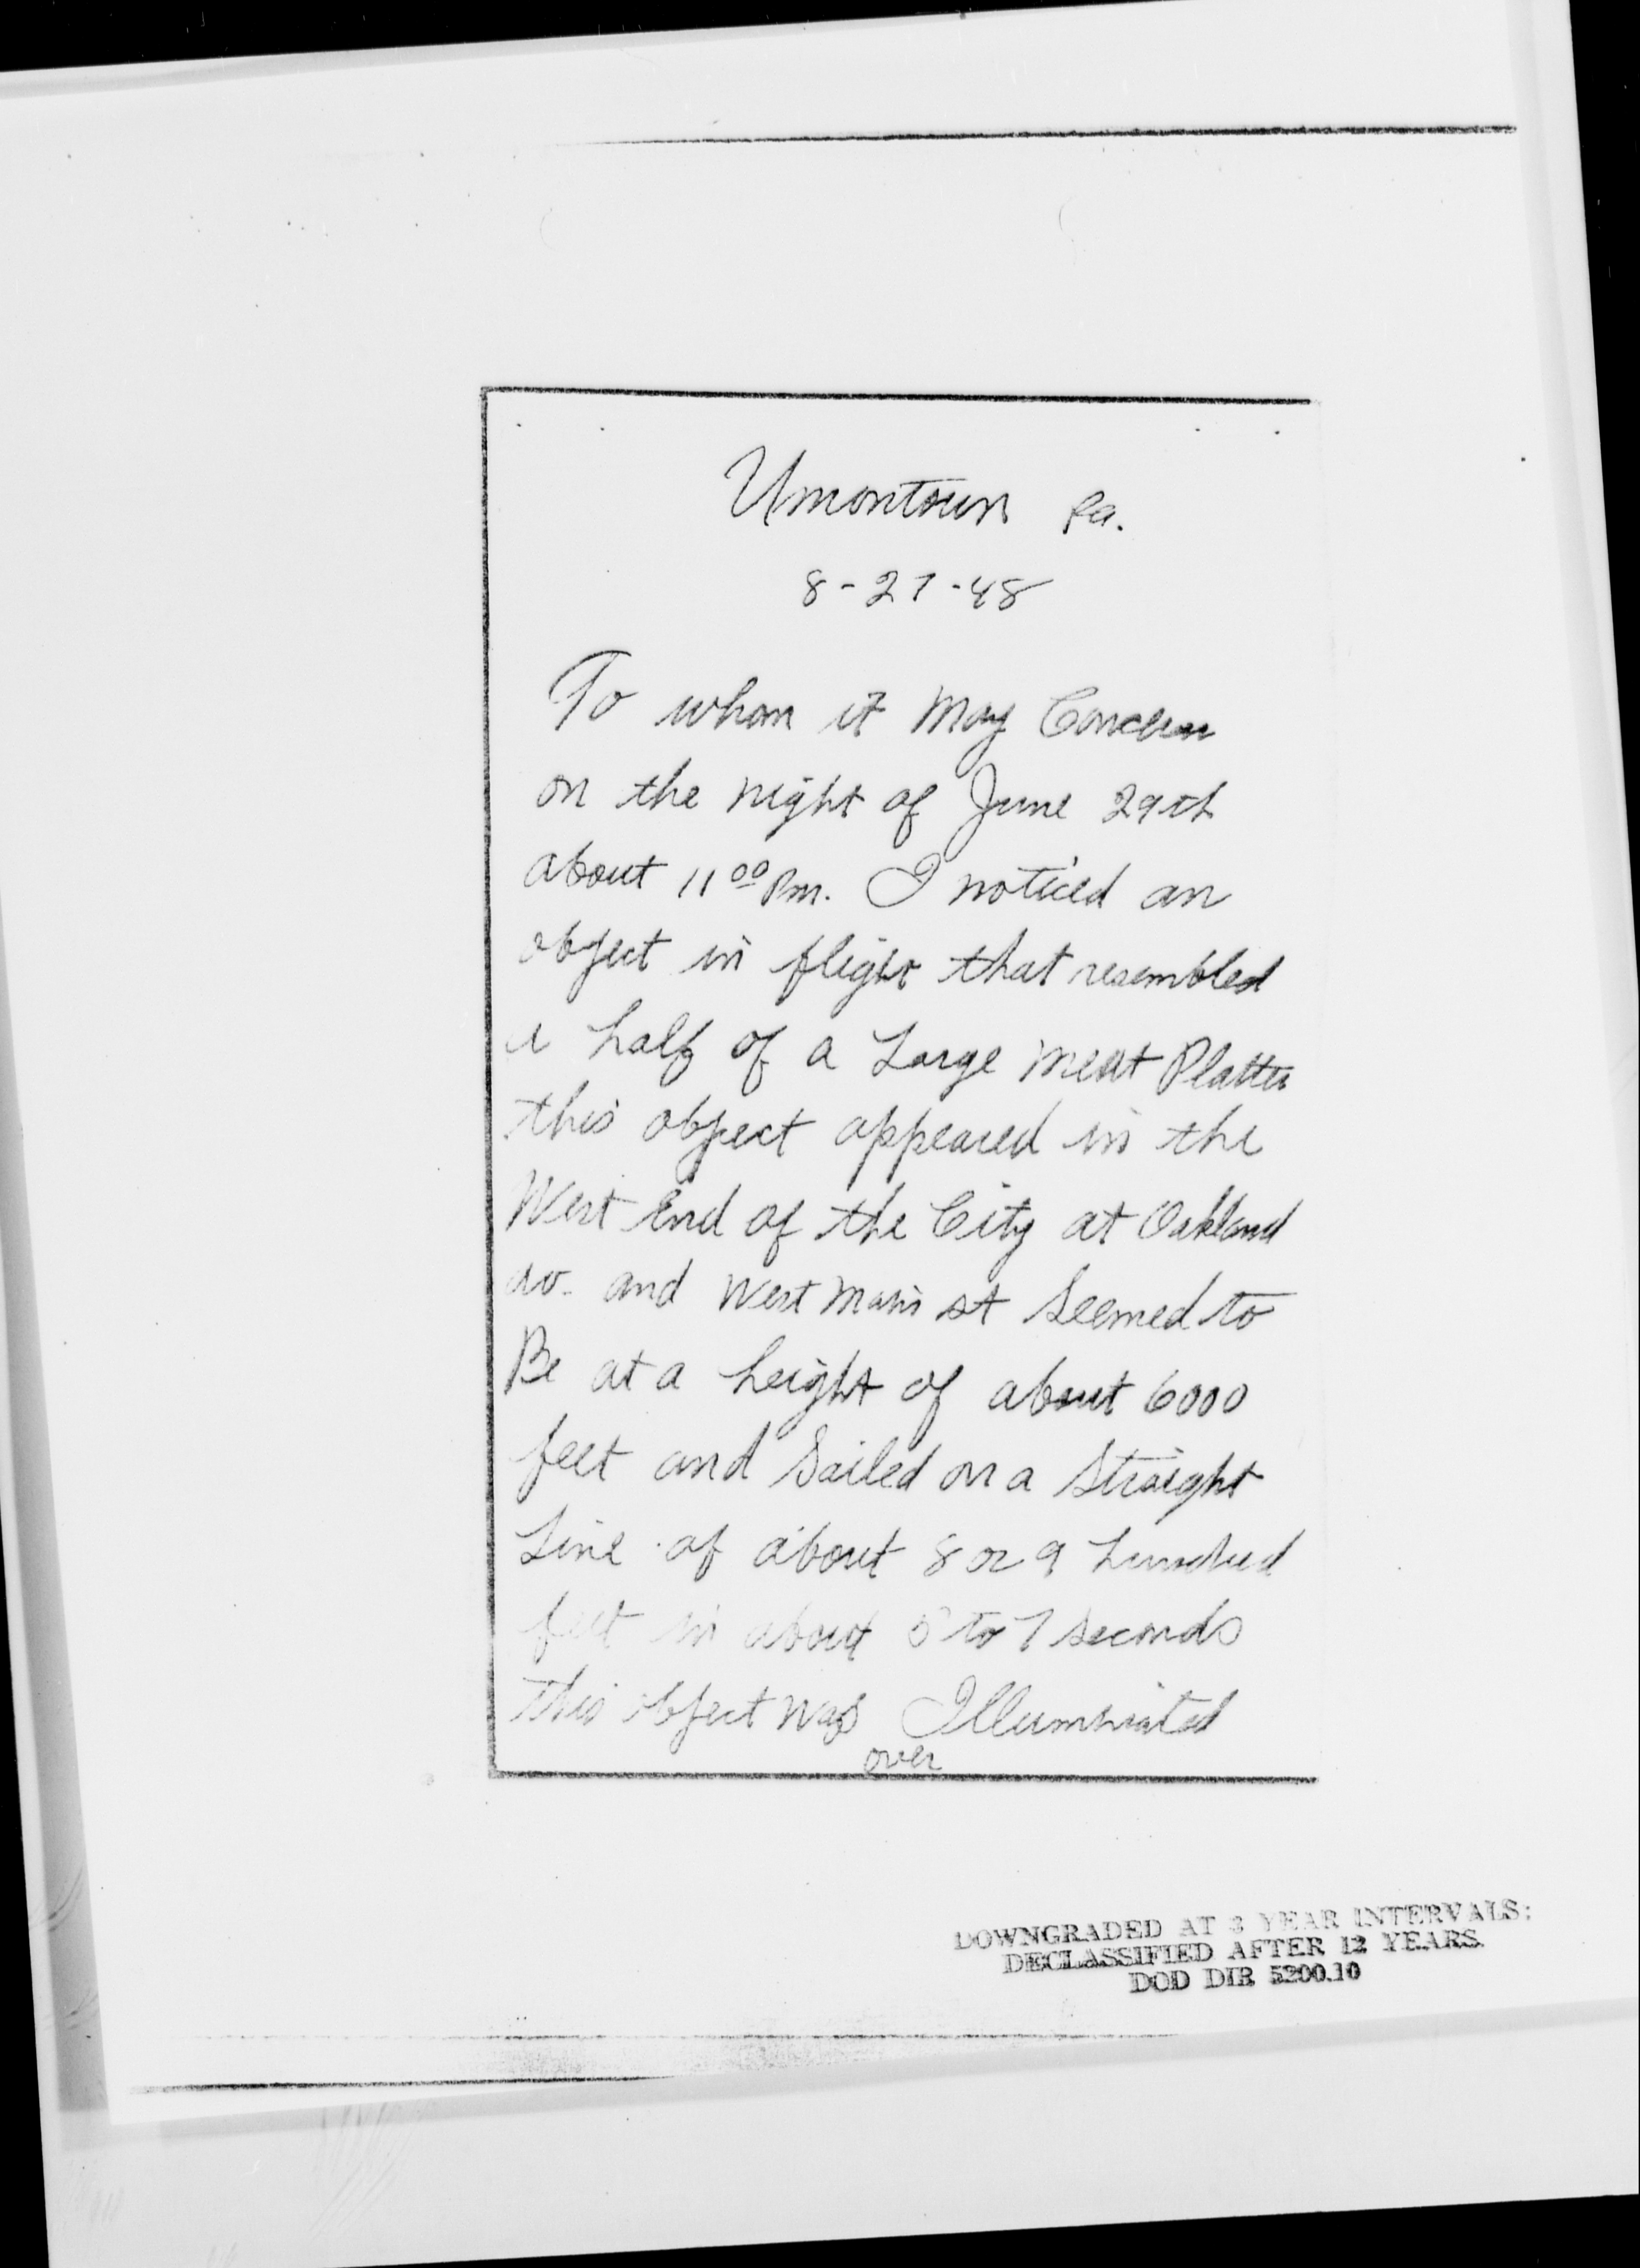 Uniontown Pa.
8-27-48
To whom it May Concern
on the night of June 29th
about 11 00 Pm. I noticed an
object in flight that resembled
a half of a Large Meat Platter
this object appeared in the
West End of the City at Oakland
av. and West Main st Seemed to
Be at a height of about 6000
feet and Sailed on a Straight
Line of about 8 or 9 hundred
feet in about 5 to 7 seconds
this object was Illuminated
over
DOWNGRADED AT 3 YEAR INTERVALS;
DECLASSIFIED AFTER 12 YEARS.
DOD DIR 5200.10